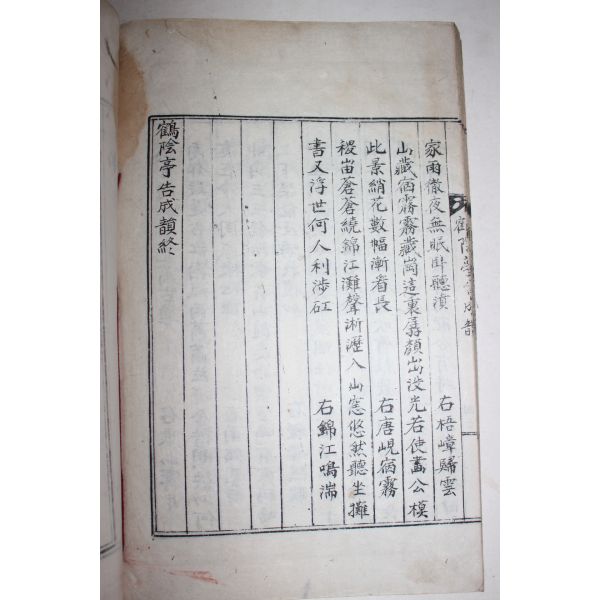 家雨徹夜無眠卧聽湏
右梧嶂歸雲
山藏宿霧霧藏崗這裏孱顏出沒光若使畵公模
此景綃花數幅漸看長
右唐峴宿霧
稷峀蒼蒼繞錦江灘聲淅瀝入山窓悠然聽坐攤
書又浮世何人利涉矼
右錦江鳴湍
鶴陰亭告成韻終